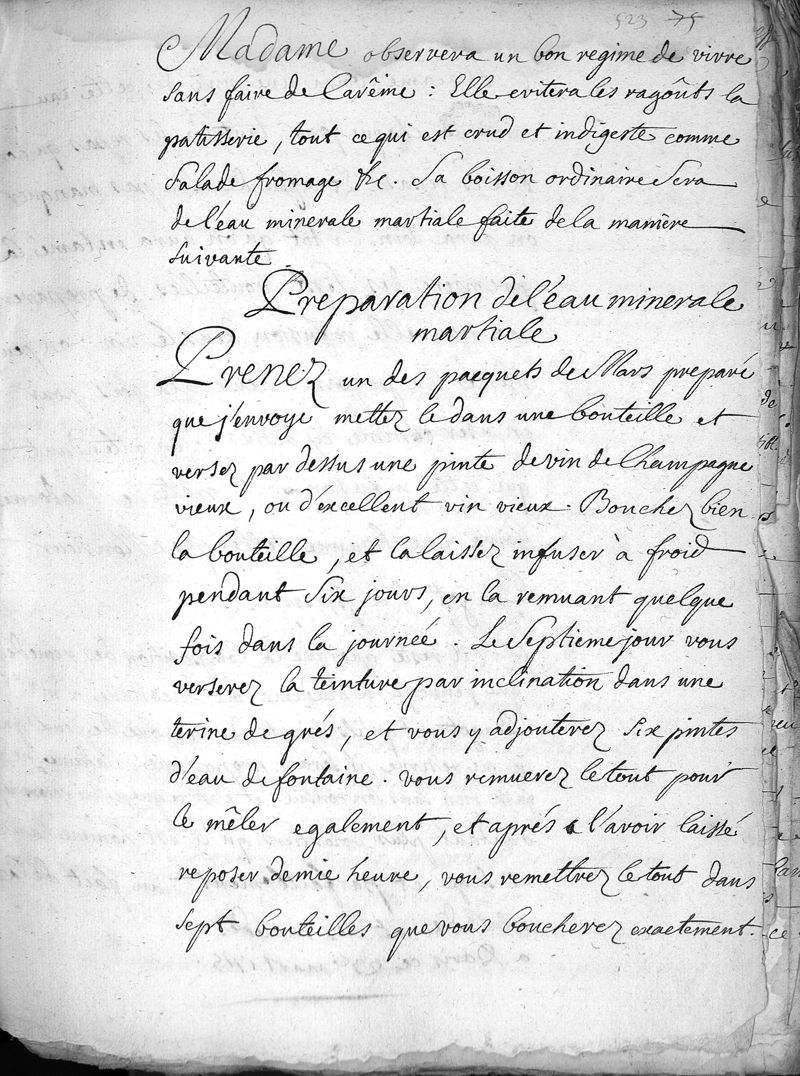 523 75
Madame observera un bon regime de vivre
sans faire de Carême : Elle evitera les ragoûts la
patisserie, tout ce qui est crud et indigeste comme
Salade fromage &c. Sa boisson ordinaire Sera
de l'eau minerale martiale faite de la maniere
suivante
Preparation de l'eau minerale
martiale
Prenez un des pacquets de Mars preparé
que j'envoye mettez le dans une bouteille et
versez par dessus une pinte de vin de Champagne
vieux, ou d'excellent vin vieux. Bouchez bien
la bouteille, et la laissez infuser à froid
pendant six jours, en la remuant quelque
fois dans la journeé. Le Septieme jour vous
verserez la teinture par inclination dans une
terine de grés, et vous y adjouterez six pintes
d'eau de fontaine. vous remuerez le tout pour
le mêler egalement, et aprés l'avoir laissé
reposer demie heure, vous remettrez le tout dans
sept bouteilles que vous boucherez exactement.